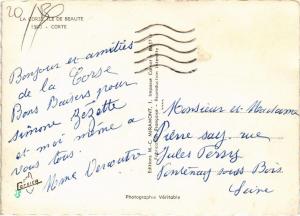 20/80
LA CORSE, ILE DE BEAUTE
1520 - CORTE
Bonjour et amitiés
de la Corse
Bons Baisers pour
simone Zézette
et moi même a
vous tous.
Mme
Corsica
Editions M.-C. MIRAMONT, 1, Impasse
Monsieur et Madame
Pierre sary. rue
Jules Ferry
Fontenay sous Bois
Seine
Photographie Véritable